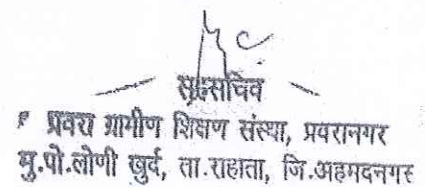 सहसचिव
प्रवरा ग्रामीण शिक्षण संस्था, प्रवरानगर
मु.पो.लोणी खुर्द, ता.राहाता, जि.अहमदनगर